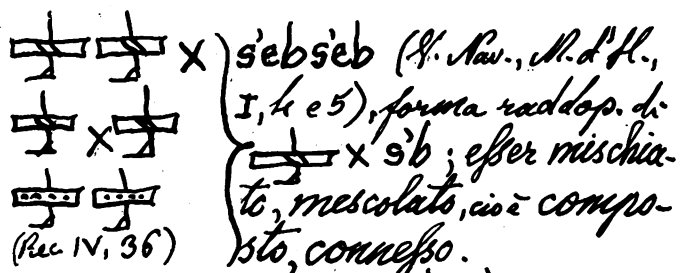 s'ebs'eb (V. Nav., M. d'H.,
I, 4 e 5), forma raddop. di
× s'b; esser mischia-
to, mescolato, cioè compo-
sto, connesso.
(Rec IV, 36)